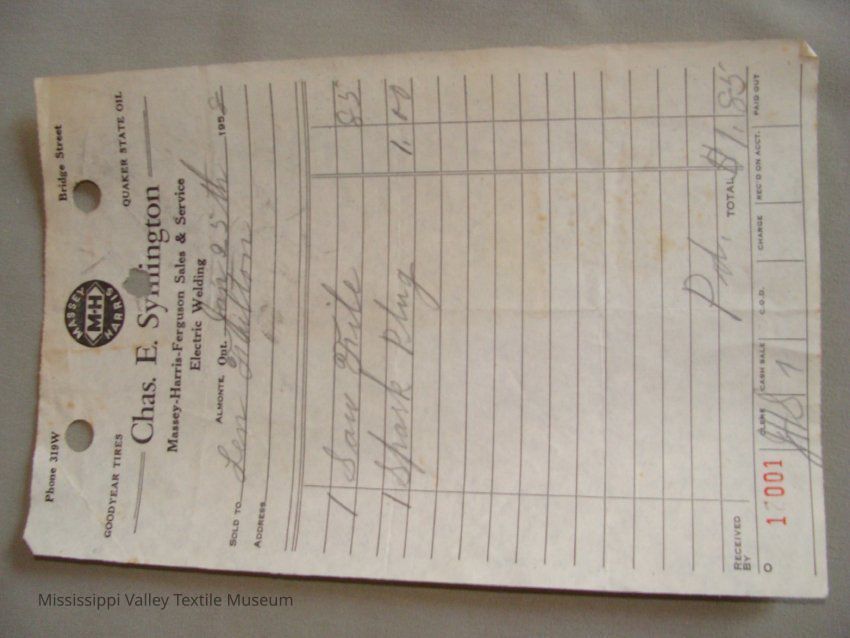 Phone 319W Bridge Street
MASSEY
M-H
HARRIS
GOODYEAR TIRES QUAKER STATE OIL
Chas. E. Symington
Massey-Harris-Ferguson Sales & Service
Electric Welding
ALMONTE, Ont. Jan 25th 195
SOLD TO Len
ADDRESS
1 Saw File 85
1 Spark Plug 1.00
Pd.
TOTAL $1.85
RECEIVED BY
O CLERK CASH SALE C.O.D. CHARGE REC'D ON ACCT. PAID OUT
001
Mississippi Valley Textile Museum